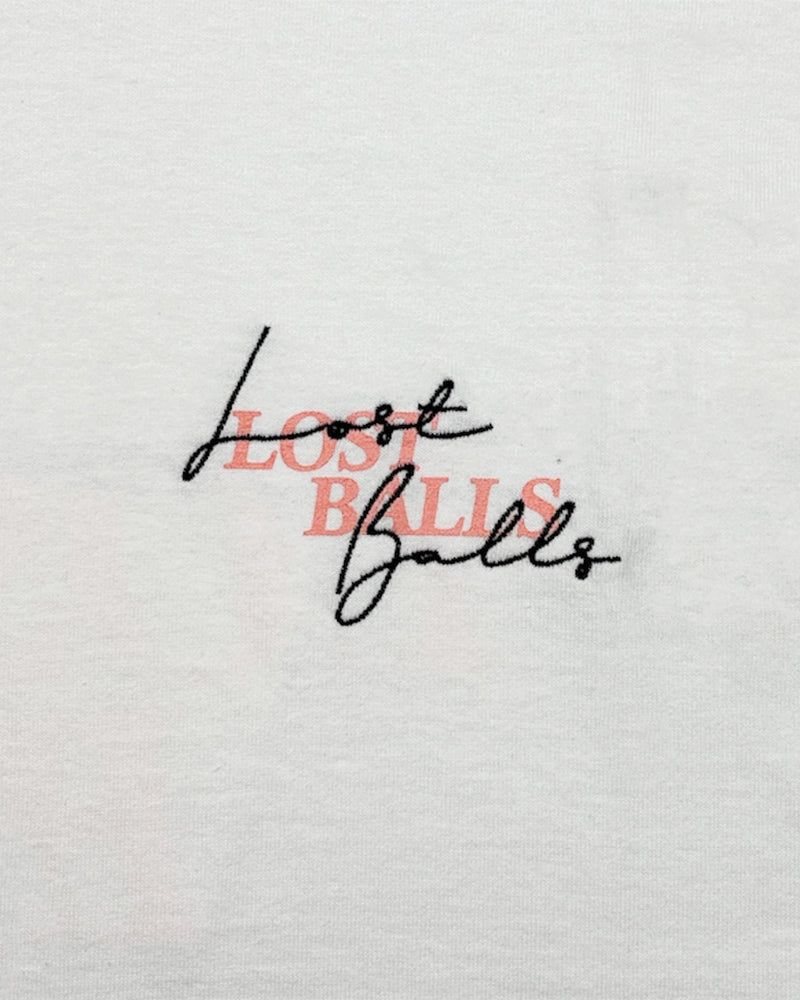 Lost
LOST
BALLS
Balls